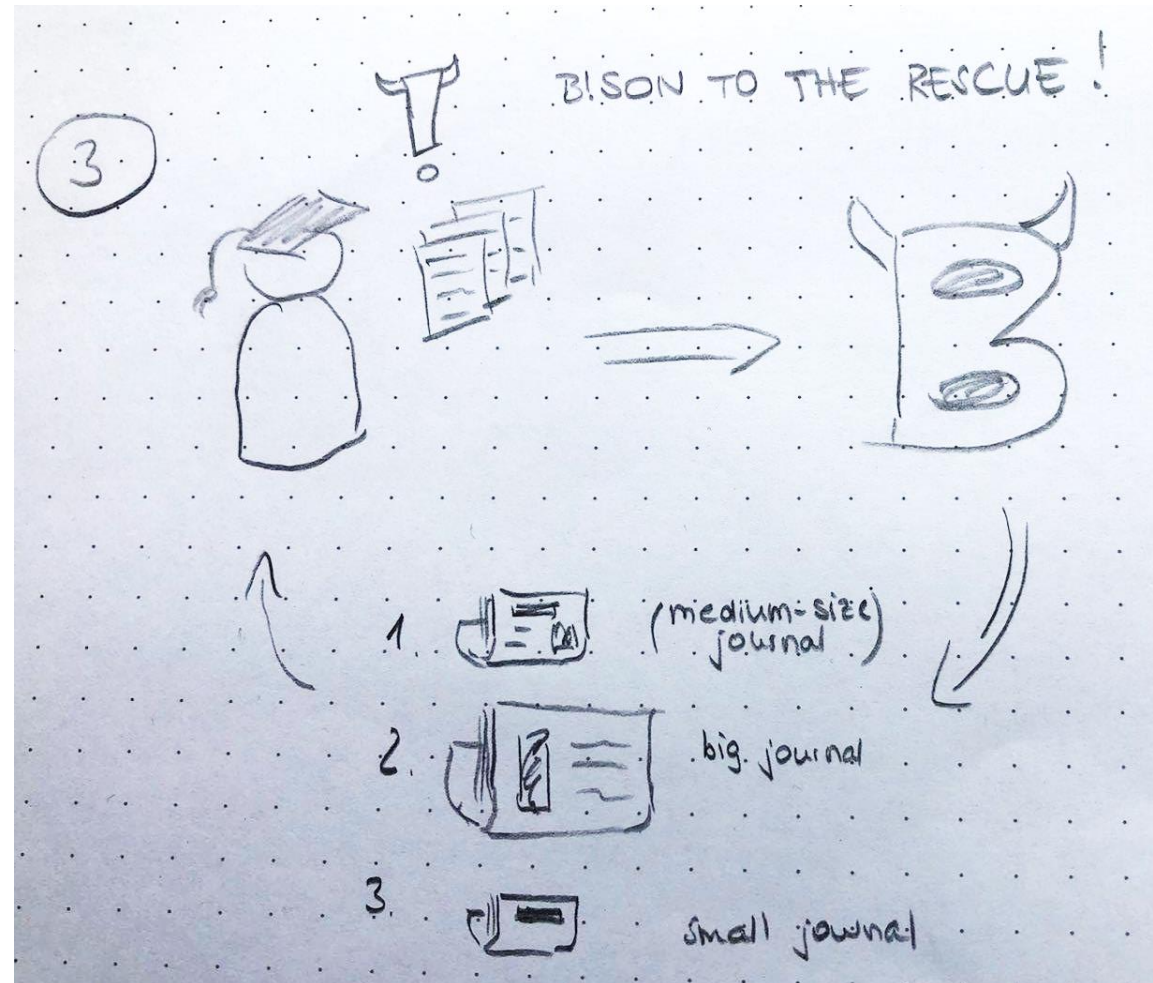 BISON TO THE RESCUE!
3
B
1. (medium-size)
journal
2. big journal
3. small journal